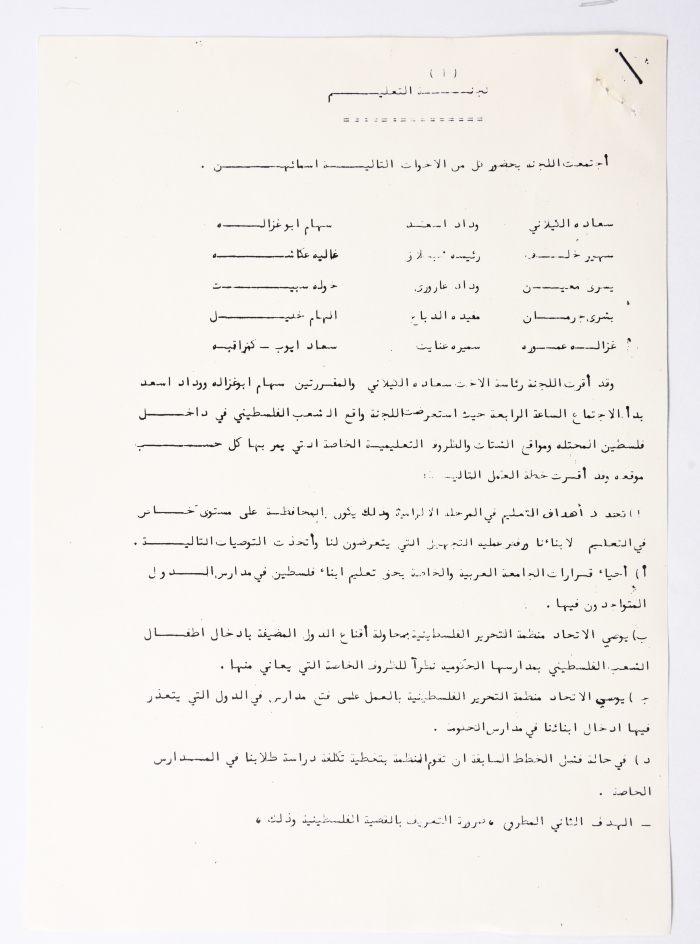 ( ١ )
لجنة التعليم
أجتمعت اللجنه بحضور كل من الاخوات التالية اسمائهن .
سعاده الكيلاني وداد اسعد سهام ابو غزاله
سهير خلف رئيسه غاليه عكاشه
يسرى معين وداد عاروري خوله سبيت
بشرى جرمان مفيده الدباغ الهام خليل
غزاله عموره سميره عنايت سعاد ايوب - كهراقيه
وقد أقرت اللجنة رئاسة الاخت سعاده الكيلاني والمقررتين سهام ابوغزاله ووداد اسعد
بدأ الاجتماع الساعة الرابعة حيث استعرضت اللجنة واقع الشعب الفلسطيني في داخل
فلسطين المحتله ومواقع الشتات والظروف التعليمية الخاصة التي يمر بها كل حسب
موقعه وقد أقسرت خطة العمل التالية :
١) تحدد أهداف التعليم في المرحلة الالزامية وذلك يكون بالمحافظة على مستوى خاص
في التعليم لابنائنا ورفض عمليه التجهيل التي يتعرضون لنا وأتخذت التوصيات التالية .
أ) أحياء قسرارات الجامعة العربية والخاصة بحق تعليم ابناء فلسطين في مدارس الدول
المتواجدون فيها .
ب) يوصي الاتحاد منظمة التحرير الفلسطينية بمحاولة أقناع الدول المضيفة بادخال اطفال
الشعب الفلسطيني بمدارسها الحكوميه نظراً للظروف الخاصة التي يعاني منها .
جـ ) يوصي الاتحاد منظمة التحرير الفلسطينية بالعمل على فتح مدارس في الدول التي يتعذر
فيها ادخال ابنائنا في مدارس الحكومة .
د ) في حالة فشل الخطط السابقة ان تقوم المنظمة بتغطية تكلفة دراسة طلابنا في المدارس
الخاصة .
- الهدف الثاني المطروح ، ضرورة التعريف بالقضية الفلسطينية وذلك ،